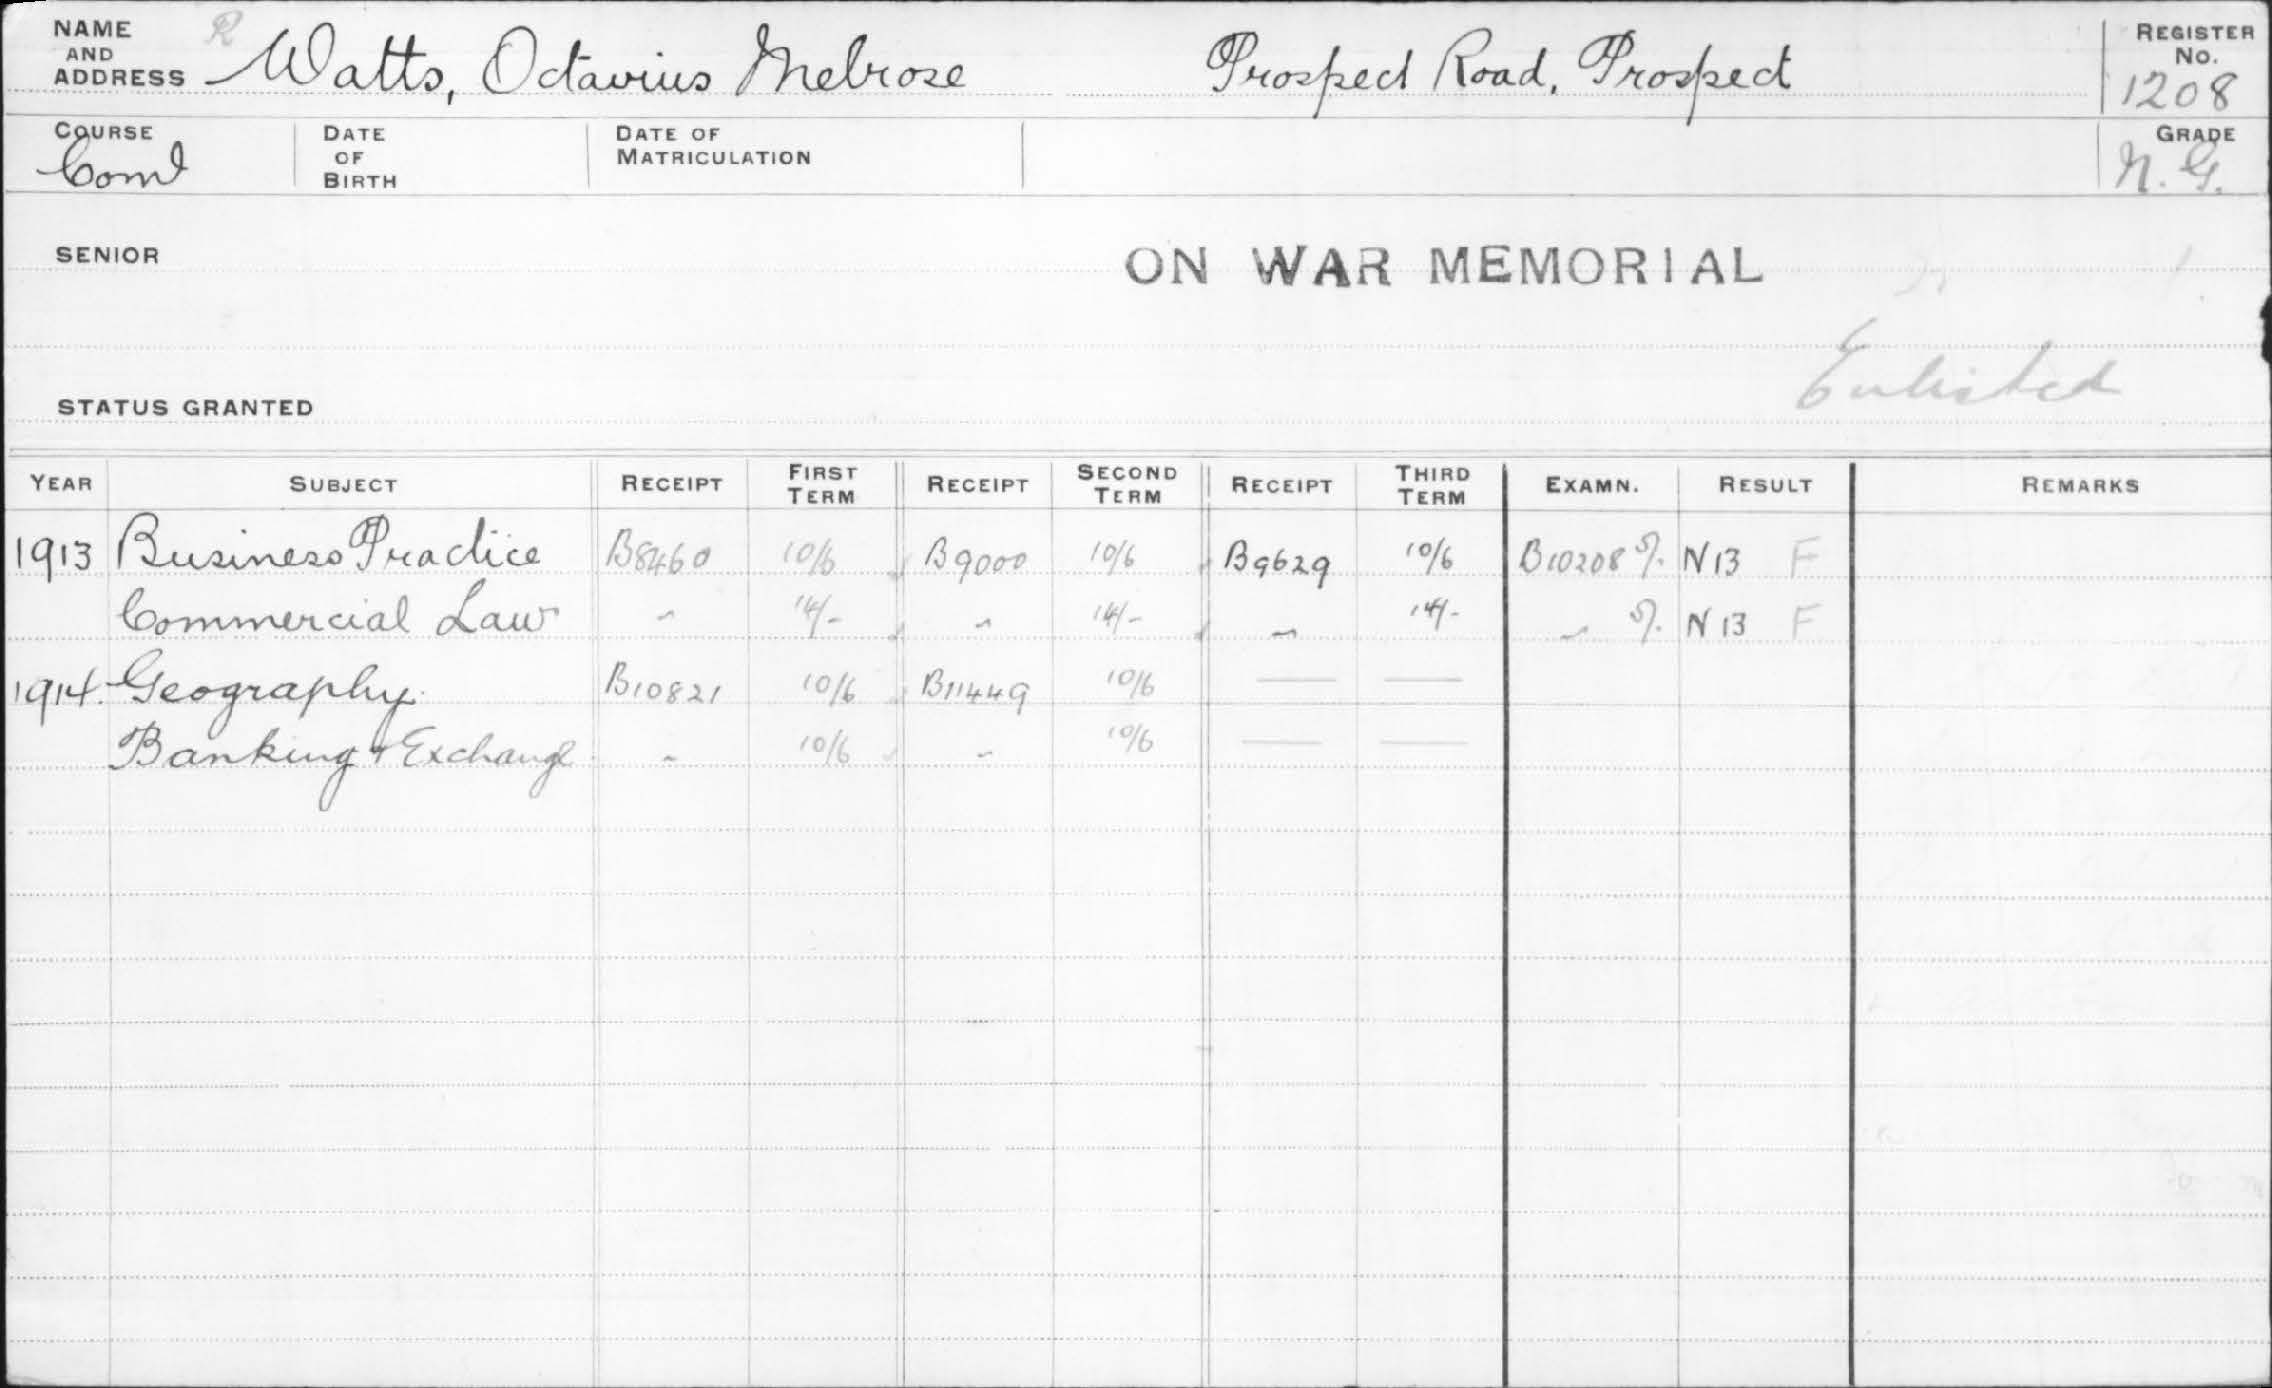 NAME AND ADDRESS R Watts, Octavius Melrose Prospect Road, Prospect REGISTER No. 1208
COURSE Coml DATE OF BIRTH DATE OF MATRICULATION GRADE N.G.
SENIOR ON WAR MEMORIAL
Enlisted
STATUS GRANTED
YEAR SUBJECT RECEIPT FIRST TERM RECEIPT SECOND TERM RECEIPT THIRD TERM EXAMN. RESULT REMARKS
1913 Business Practice B8460 10/6 B9000 10/6 B9629 10/6 B10208 5/. N13 F
Commercial Law " 14/- " 14/- " 14/- " 5/. N13 F
1914. Geography B10821 10/6 B11449 10/6 — —
Banking & Exchange " 10/6 " 10/6 — —